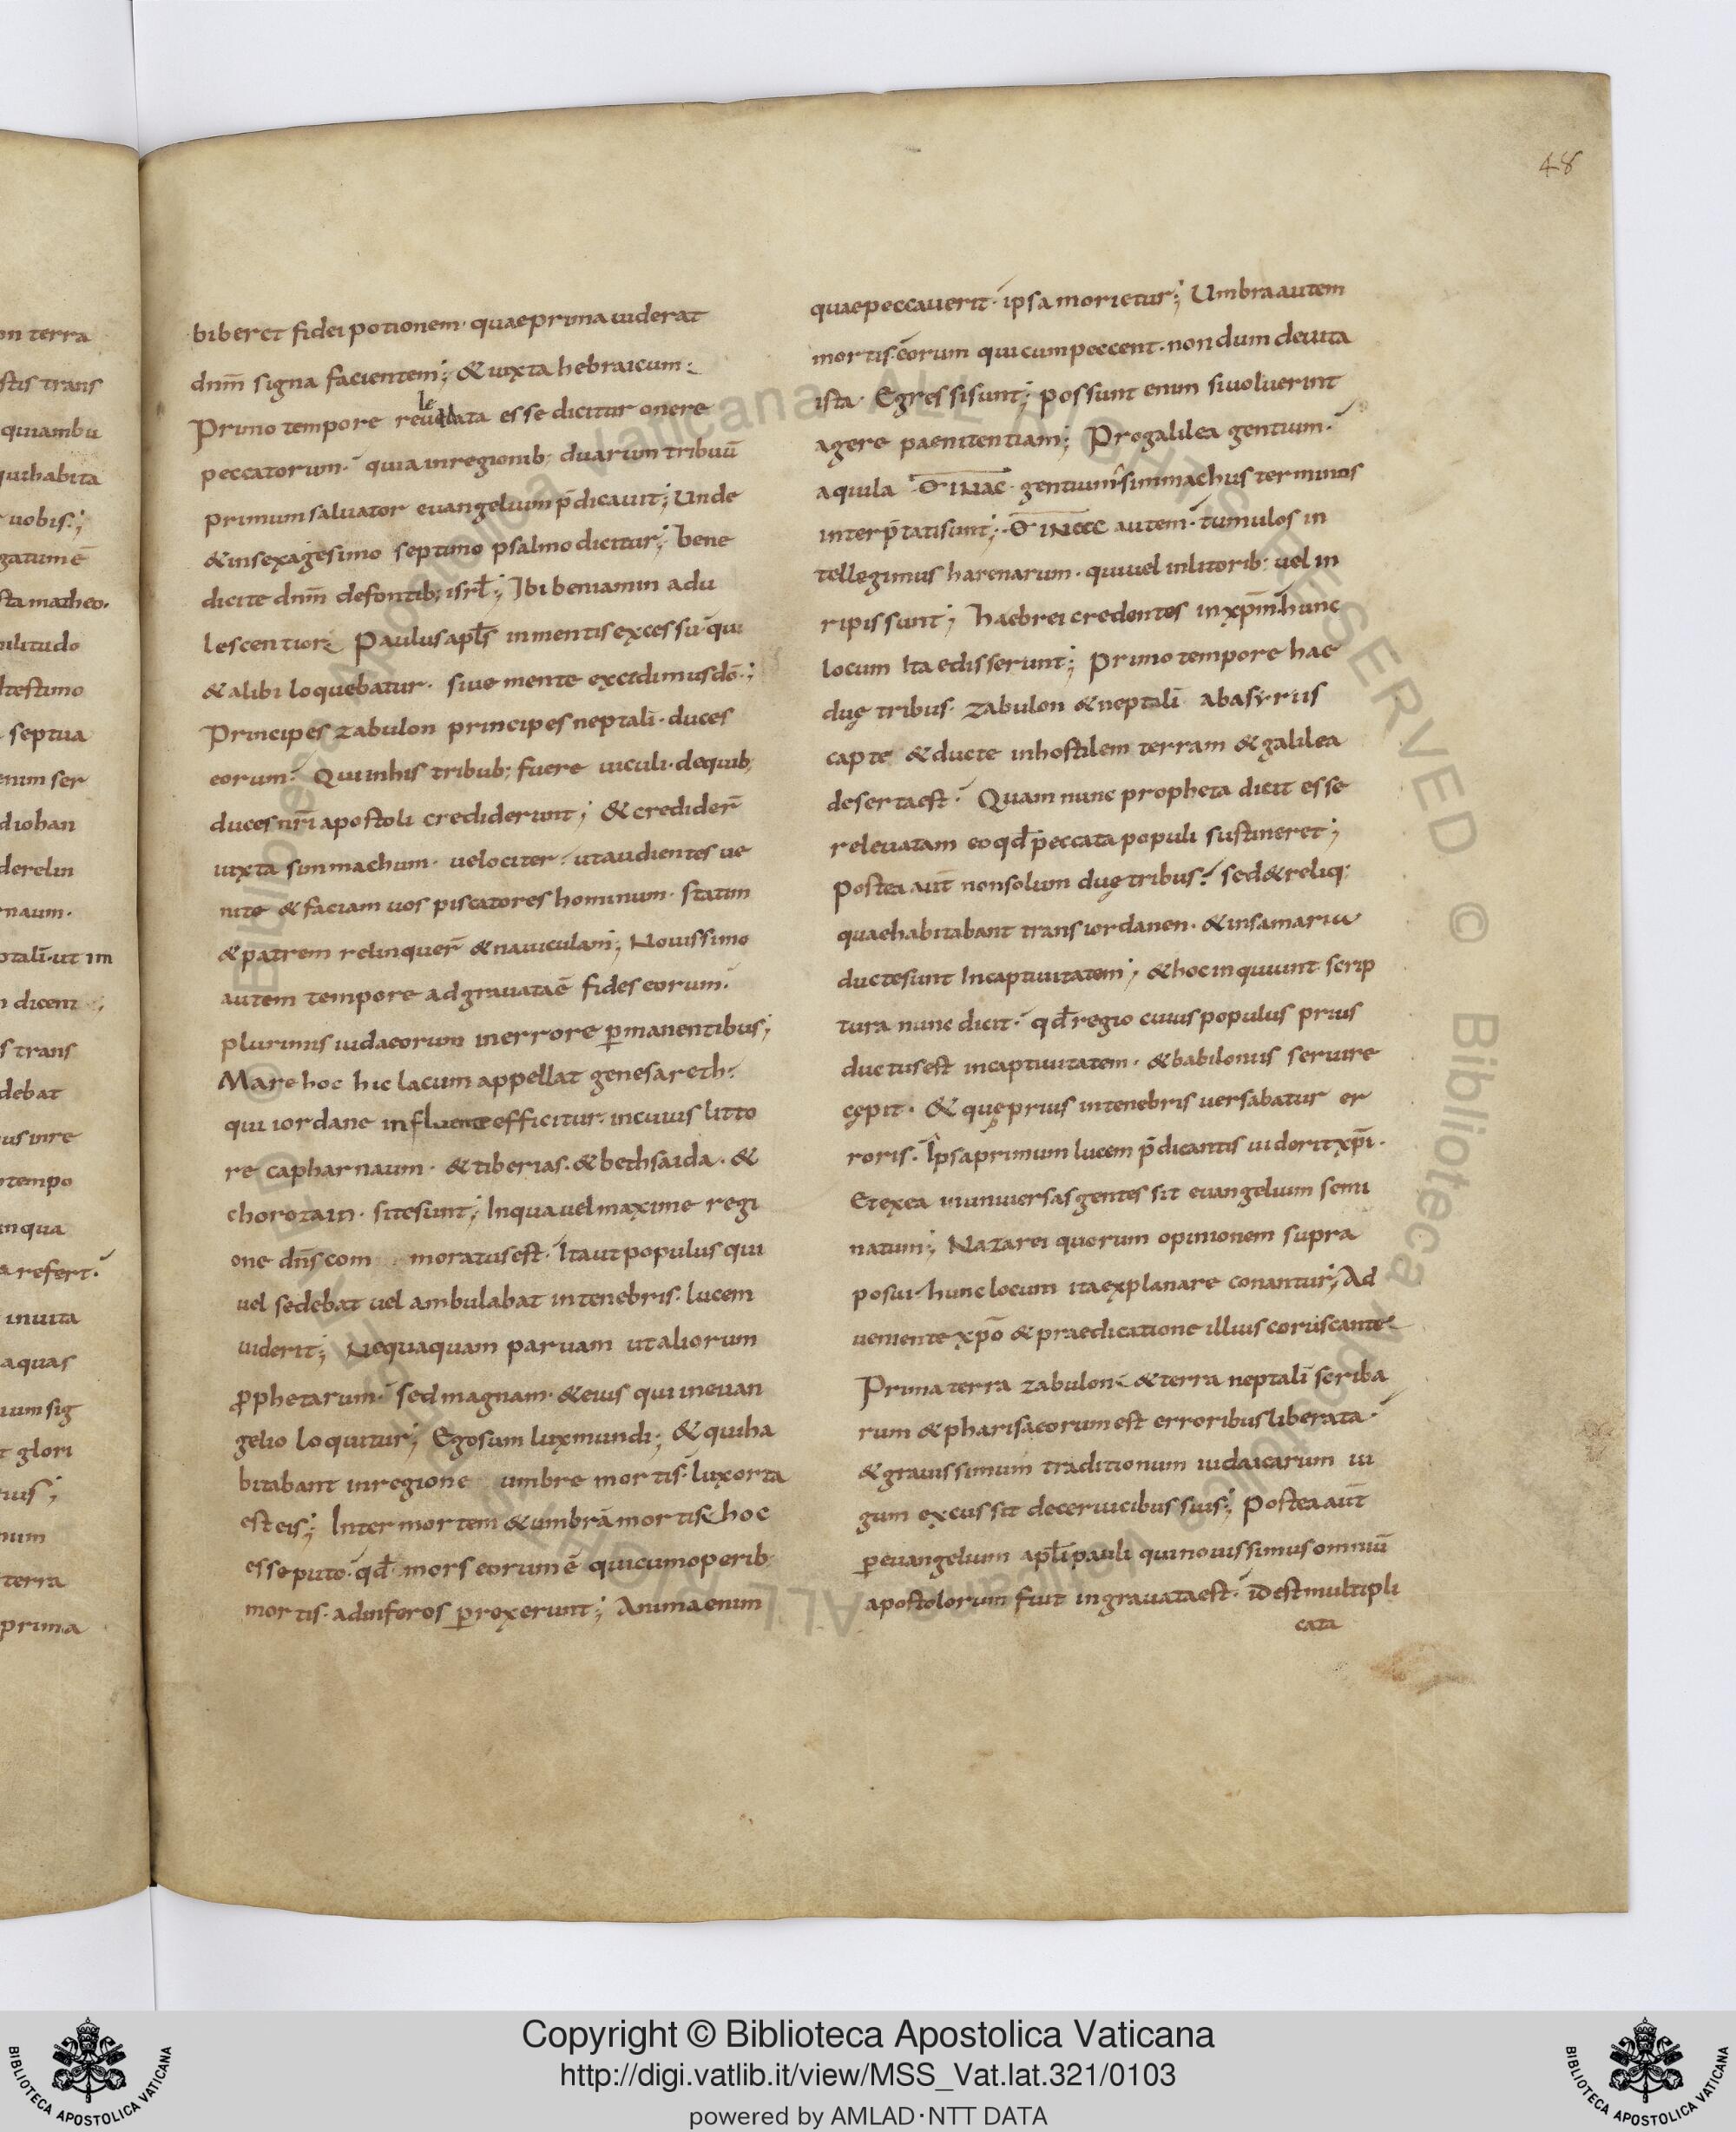 48
biberet fidei potionem· quae prima uiderat
dnm̄ signa facientem; & iuxta hebraicum:
Primo tempore releuata esse dicitur onere
peccatorum· quia in regionib; duarum tribuū
primum saluator euangelium p̄dicauit; Unde
& in sexagesimo septimo psalmo dicitur; Bene
dicite dnm̄ de fontib; isrl̄; Ibi beniamin adu
lescentior Paulus apl̄s in mentis excessu· qui
& alibi loquebatur· siue mente excidimus dō;
Principes zabulon principes neptalī· duces
eorum· Qui in his tribub; fuere uiculi· de quib;
duces nr̄i apostoli crediderunt; & credider̄
iuxta simmachum· uelociter· ut audientes ue
nite & faciam uos piscatores hominum· statim
& patrem relinquer̄ & nauiculam; Nouissimo
autem tempore adgrauata ē fides eorum·
plurimis iudaeorum in errore p̄manentibus;
Mare hoc hic lacum appellat genesareth·
qui iordane influente efficitur· in cuius litto
re capharnaum· & tiberias· & bethsaida· &
chorozain· site sunt; In qua uel maxime regi
one dn̄s com moratus est· Ita ut populus qui
uel sedebat uel ambulabat in tenebris· lucem
uiderit; Nequaquam paruam ut aliorum
p̄phetarum· sed magnam· & eius qui in euan
gelio loquitur; Ego sum lux mundi; & qui ha
bitabant in regione umbre mortis· lux orta
est eis; Inter mortem & umbrā mortis· hoc
esse puto· qd̄ mors eorum ē qui cum operib;
mortis· ad inferos p̄rexerunt; Anima enim
quae peccauerit· ipsa morietur; Umbra autem
mortis· eorum qui cum peccent· nondum de uita
ista· Egressi sunt; possunt enim si uoluerint
agere paenitentiam; Pro galilea gentium·
aquila gentium· simmachus terminos
interp̄tati sunt; autem· tumulos in
tellegimus harenarum· qui uel in litorib; uel in
ripis sunt; Haebrei credentes in xp̄m· hunc
locum Ita edisserunt; Primo tempore hae
duę tribus· zabulon & neptalī ab asyriis
capte & ducte in hostilem terram & galilea
deserta est· Quam nunc propheta dicit esse
releuatam eo qd̄ peccata populi sustineret;
Postea aut̄ non solum duę tribus· sed & reliq;
quae habitabant trans iordanen· & in samaria
ducte sunt In captiuitatem; & hoc inquiunt scrip
tura nunc dicit· qd̄ regio cuius populus prius
ductus est in captiuitatem· & babilonus seruire
cępit· & quę prius in tenebris uersabatur er
roris· Ipsa primum lucem p̄dicantis uiderit xp̄i·
Et ex ea in uniuersas gentes sit euangelium semi
natum; Nazarei quorum opinionem supra
posui· hunc locum ita explanare conantur; Ad
ueniente xp̄o & praedicatione illius coruscante
Prima terra zabulon & terra neptalī scriba
rum & pharisaeorum est erroribus liberata·
& grauissimum traditionum iudaicarum iu
gum excussit de ceruicibus suis; Postea aut̄
p̄ euangelium apl̄i pauli qui nouissimus omniū
apostolorum fuit ingrauata est· id est multipli
cata
on terra
stis trans
quiambu
qui habita
uobis;
gatum ē
sta matheo·
ltestimo
septua
enim ser
d iohan
derelin
naum·
ptalī· ut im
dicent
s trans
debat
us in re
tempo
in qua
a refert·
inuita
aquas
uum sig
t glori
num
terra
prima
© Biblioteca Apostolica Vaticana ALL RIGHTS RESERVED © Biblioteca Apostolica Vaticana ALL RIGHTS RESERVED
BIBLIOTECA APOSTOLICA VATICANA
Copyright © Biblioteca Apostolica Vaticana
http://digi.vatlib.it/view/MSS_Vat.lat.321/0103
powered by AMLAD·NTT DATA
BIBLIOTECA APOSTOLICA VATICANA